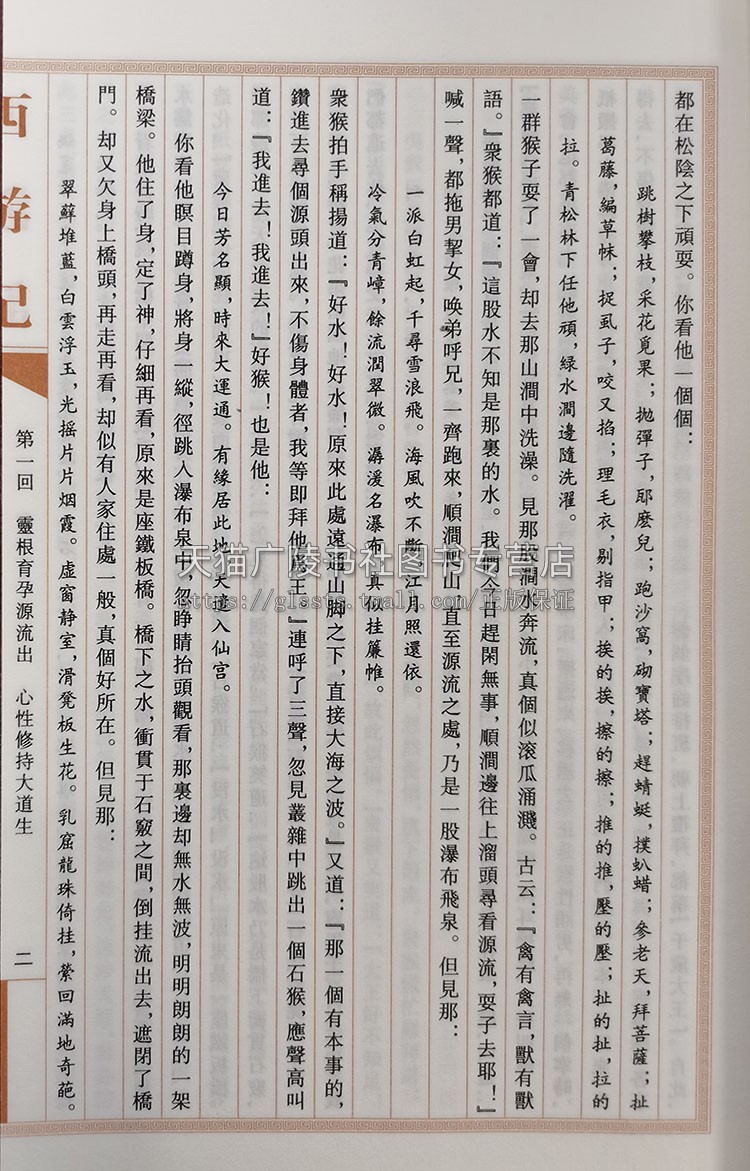 都在松陰之下頑耍。你看他一個個：
跳樹攀枝，采花覓果；抛彈子，邷麽兒；跑沙窩，砌寶塔；趕蜻蜓，撲趴蜡；參老天，拜菩薩；扯
葛藤，編草帓；捉虱子，咬又掐；理毛衣，剔指甲；挨的挨，擦的擦；推的推，壓的壓；扯的扯，拉的
拉。青松林下任他頑，緑水澗邊隨洗濯。
一群猴子耍了一會，却去那山澗中洗澡。見那股澗水奔流，真個似滚瓜涌濺。古云：『禽有禽言，獸有獸
語。』衆猴都道：『這股水不知是那裏的水。我們今日趕閑無事，順澗邊往上溜頭尋看源流，耍子去耶！』
喊一聲，都拖男挈女，唤弟呼兄，一齊跑來，順澗爬山，直至源流之處，乃是一股瀑布飛泉。但見那：
一派白虹起，千尋雪浪飛。海風吹不斷，江月照還依。
冷氣分青嶂，餘流潤翠微。潺湲名瀑布，真似挂簾帷。
衆猴拍手稱揚道：『好水！好水！原來此處遠通山脚之下，直接大海之波。』又道：『那一個有本事的，
鑽進去尋個源頭出來，不傷身體者，我等即拜他爲王。』連呼了三聲，忽見叢雜中跳出一個石猴，應聲高叫
道：『我進去！我進去！』好猴！也是他：
今日芳名顯，時來大運通。有緣居此地，天遣入仙宫。
你看他瞑目蹲身，將身一縱，徑跳入瀑布泉中，忽睁睛抬頭觀看，那裏邊却無水無波，明明朗朗的一架
橋梁。他住了身，定了神，仔細再看，原來是座鐵板橋。橋下之水，衝貫于石竅之間，倒挂流出去，遮閉了橋
門。却又欠身上橋頭，再走再看，却似有人家住處一般，真個好所在。但見那：
翠蘚堆藍，白雲浮玉，光摇片片烟霞。虚窗静室，滑凳板生花。乳窟龍珠倚挂，縈回滿地奇葩。
西游记
第一回　靈根育孕源流出　心性修持大道生
二
天猫广陵书社图书专营店
https://glssts.tmall.com/正版保证